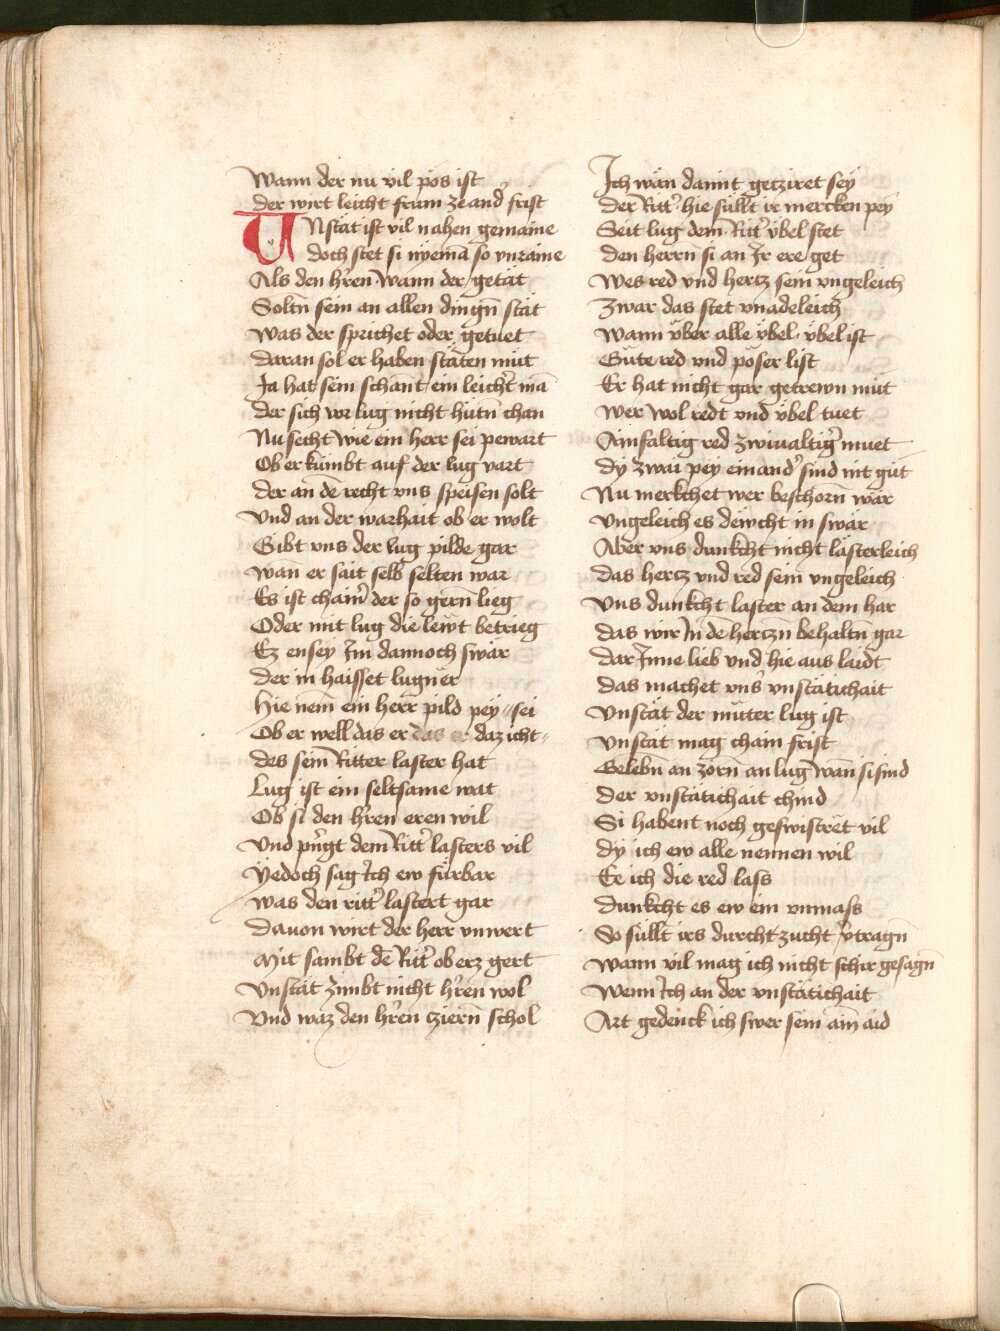 Wann der nu vil pös ist
der wirt leicht frum ze and̉ frist
UNstät ist vil nahen gemaine
doch stet si nyemā so vnraine
Als den hr̉en Wann der getät
Soltn̄ sein an allen dingn̄ stät
Was der sprichet oder getuet
daran sol er haben stäten müt
Ja hat sein schant ein leicht̉ mā
der sich vor lug nicht hütn̄ chan
Nu secht wie ein herr sei pewart
Ob er kümbt auf der lug vart
der an dē recht vns speisen solt
Vnd an der warhait ob er wolt
Gibt vns der lug pilde gar
wan̄ er sait selb̉ selten war
Es ist cham̉ der so gern̄ lieg
Oder mit lug die lewt betrieg
Ez ensey Im dannoch swär
der in haisset lugnër
hie nem̄ ein herr pild pey sei
Ob er well das er das er daz icht
des sein̄ Ritter laster hat
Lug ist ein seltsame wat
Ob si den hr̉en eren wil
Vnd pn̉gt dem Ritt̉ lasters vil
Yedoch sag Ich ew fürbar
was den ritt̉ lastert gar
Dauon wirt der herr vnwert
Mit sambt dē Ritt̉ ob erz gert
Vnstät zimbt nicht hr̉en wol
Vnd waz den hr̉en cziern̄ schol
Ich wän damit gecziret sey
Der Ritt̉ hie süllt ir mercken pey
Seit lug dem Ritt̉ vbel stet
den herrn̄ si an Ir ere get
Wes red vnd hertz sein vngeleich
Zwar das stet vnadeleich
Wann vber alle vbel vbel ist
Güte red vnd pöser list
Er hat nicht gar getrewn müt
Wer wol redt vnd vbel tuet
Ainfaltig red zwiualtig̉ muet
dy zwai pey einand̉ sind nit güt
Nu merkchet wer beschorn̄ wär
Vngeleich es dewcht in swär
Aber vns dunkcht nicht lästerleich
das hercz vnd red sein vngeleich
Vns dunkcht laster an dem har
das wir In dē herczn̄ behaltn̄ gar
dar Inne lieb vnd hie aus laidt
das machet vns vnstätichait
Vnstät der müter lug ist
Vnstät mag chain frist
Gelebn̄ an zorn̄ an lug wan̄ si sind
der vnstätichait chind
Si habent noch geswistret vil
dy ich ew alle nennen wil
Ee ich die red lass
dunkcht es ew ein vnmass
So süllt irs durcht zucht v̉tragn̄
Wann vil mag ich nicht schir gesagn̄
Wenn Ich an der vnstätichait
Art gedenck ich swer sein ain aid